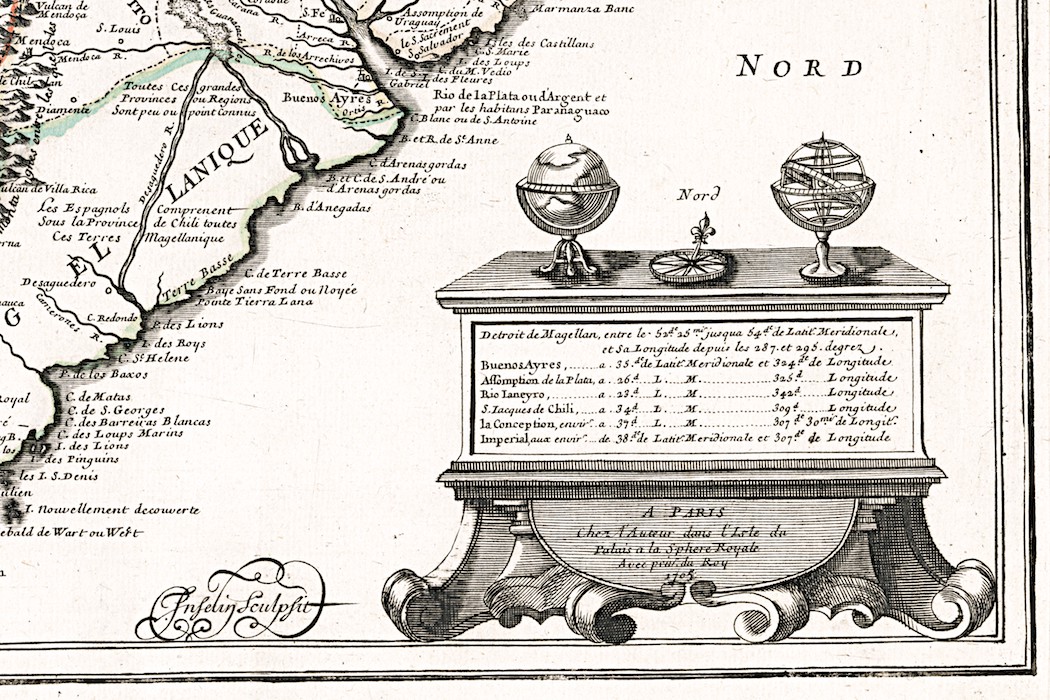 Vulcan de
Mendoça
ITO
S. Louis
Mendoça
Mendoca R.
Diamente
Guanacac
Caraña R.
S. Fe
Arreca R.
R. de los Arrechivos
Assomption de
Uraguay
le S. Sacrement
S. Salvador
Marmanza Banc
Isles des Castillans
C. S. Marie
I. des Loups
I. du M. Vedio
I. des Fleures
Gabriel
Toutes Ces grandes
Provinces ou Regions
Sont peu ou point connus
Buenos Ayres
Rio de la Plata ou d'Argent et
par les habitans Paranaguaco
C. Blanc ou de S. Antoine
B. et R. de St. Anne
C. d'Arenas gordas
B. et C. de S. André ou
d'Arenas gordas
B. d'Anegadas
LANIQUE
Desaguedero R.
Vulcan de Villa Rica
Les Espagnols Comprenent
Sous la Province de Chili toutes
Ces Terres Magellanique
EL
G
Desaguedero
Camerones R.
C. Redondo
Terre Basse
C. de Terre Basse
Baye Sans Fond ou Noyée
Pointe Tierra Lana
P. des Lions
I. des Roys
C. St. Helene
P. de los Baxos
C. de Matas
C. de S. Georges
C. des Barreiras Blancas
C. des Loups Marins
I. des Lions
I. des Pinguins
les I. S. Denis
I. Nouvellement decouverte
ebald de Wart ou Wert
NORD
Nord
Detroit de Magellan, entre le 52de 25 me jusqua 54de de Latit. Meridionale,
et Sa Longitude depuis les 287. et 295. degrez.
Buenos Ayres, ...... a. 35.de de Latit. Meridionale et 324de de Longitude
Assomption de la Plata, a. 26d. L. M. 325d Longitude
Rio Ianeyro, ...... a. 23d. L. M. 342d. Longitude
S. Iacques de Chili, .... a. 34d. L. M. 309d. Longitude
la Conception, envir. a. 37d. L. M. 307de 30me de Longit.
Imperial, aux envir. de 38de de Latit. Meridionale et 307de de Longitude
A PARIS
Chez l'Auteur dans l'Isle du
Palais a la Sphere Royale
Avec priv. du Roy
1705
Inselin Sculpsit